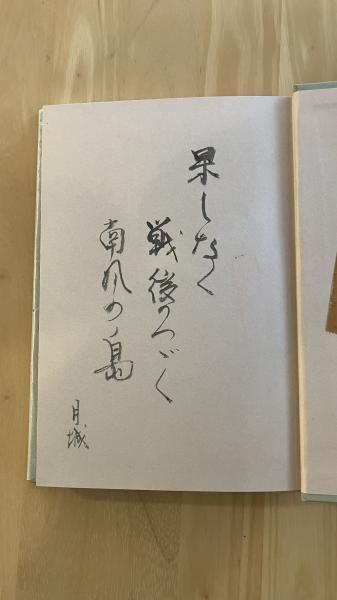 果しなく
戦後のつゞく
南風の島
月城